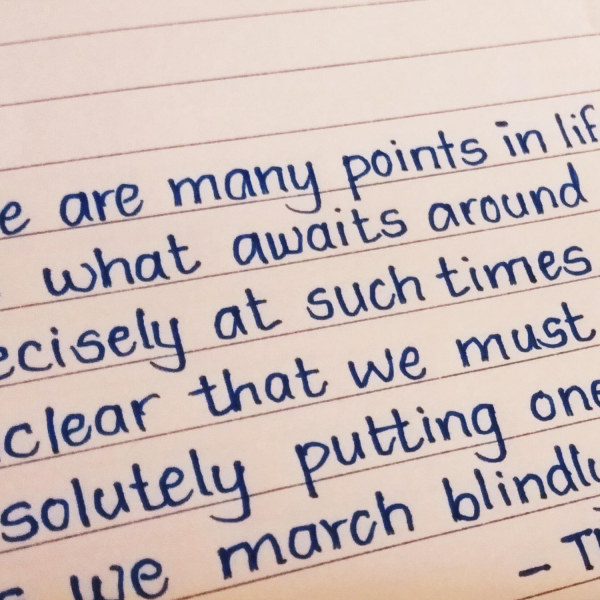 e are many points in lif
what awaits around
ecisely at such times
clear that we must
solutely putting one
s we march blindly
– Th